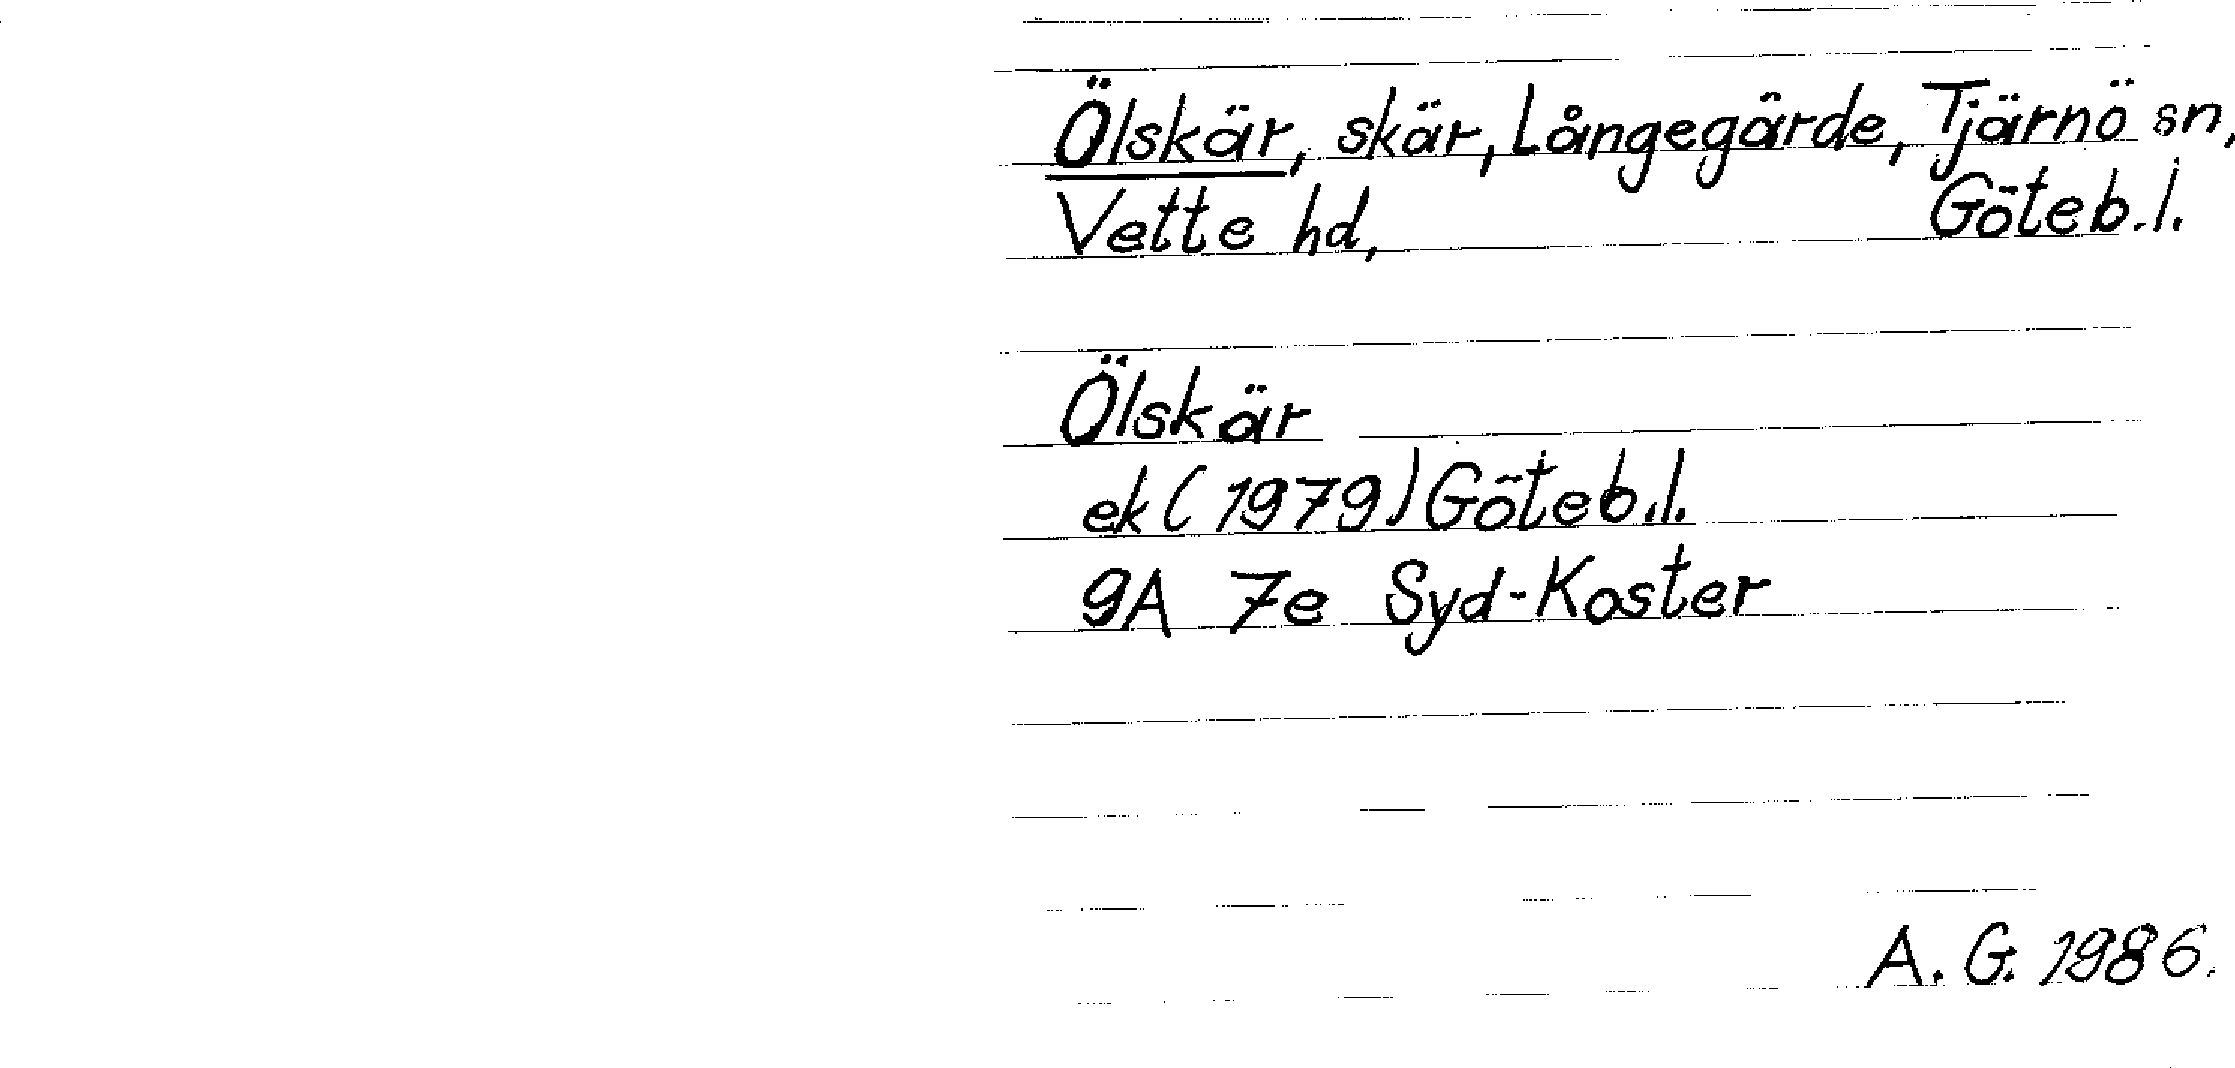 Ölskär, skär, Långegärde, Tjärnö sn,
Vette hd, Göteb.l.
Ölskär
ek (1979) Göteb.l.
9A 7e Syd-Koster
A. G. 1986.